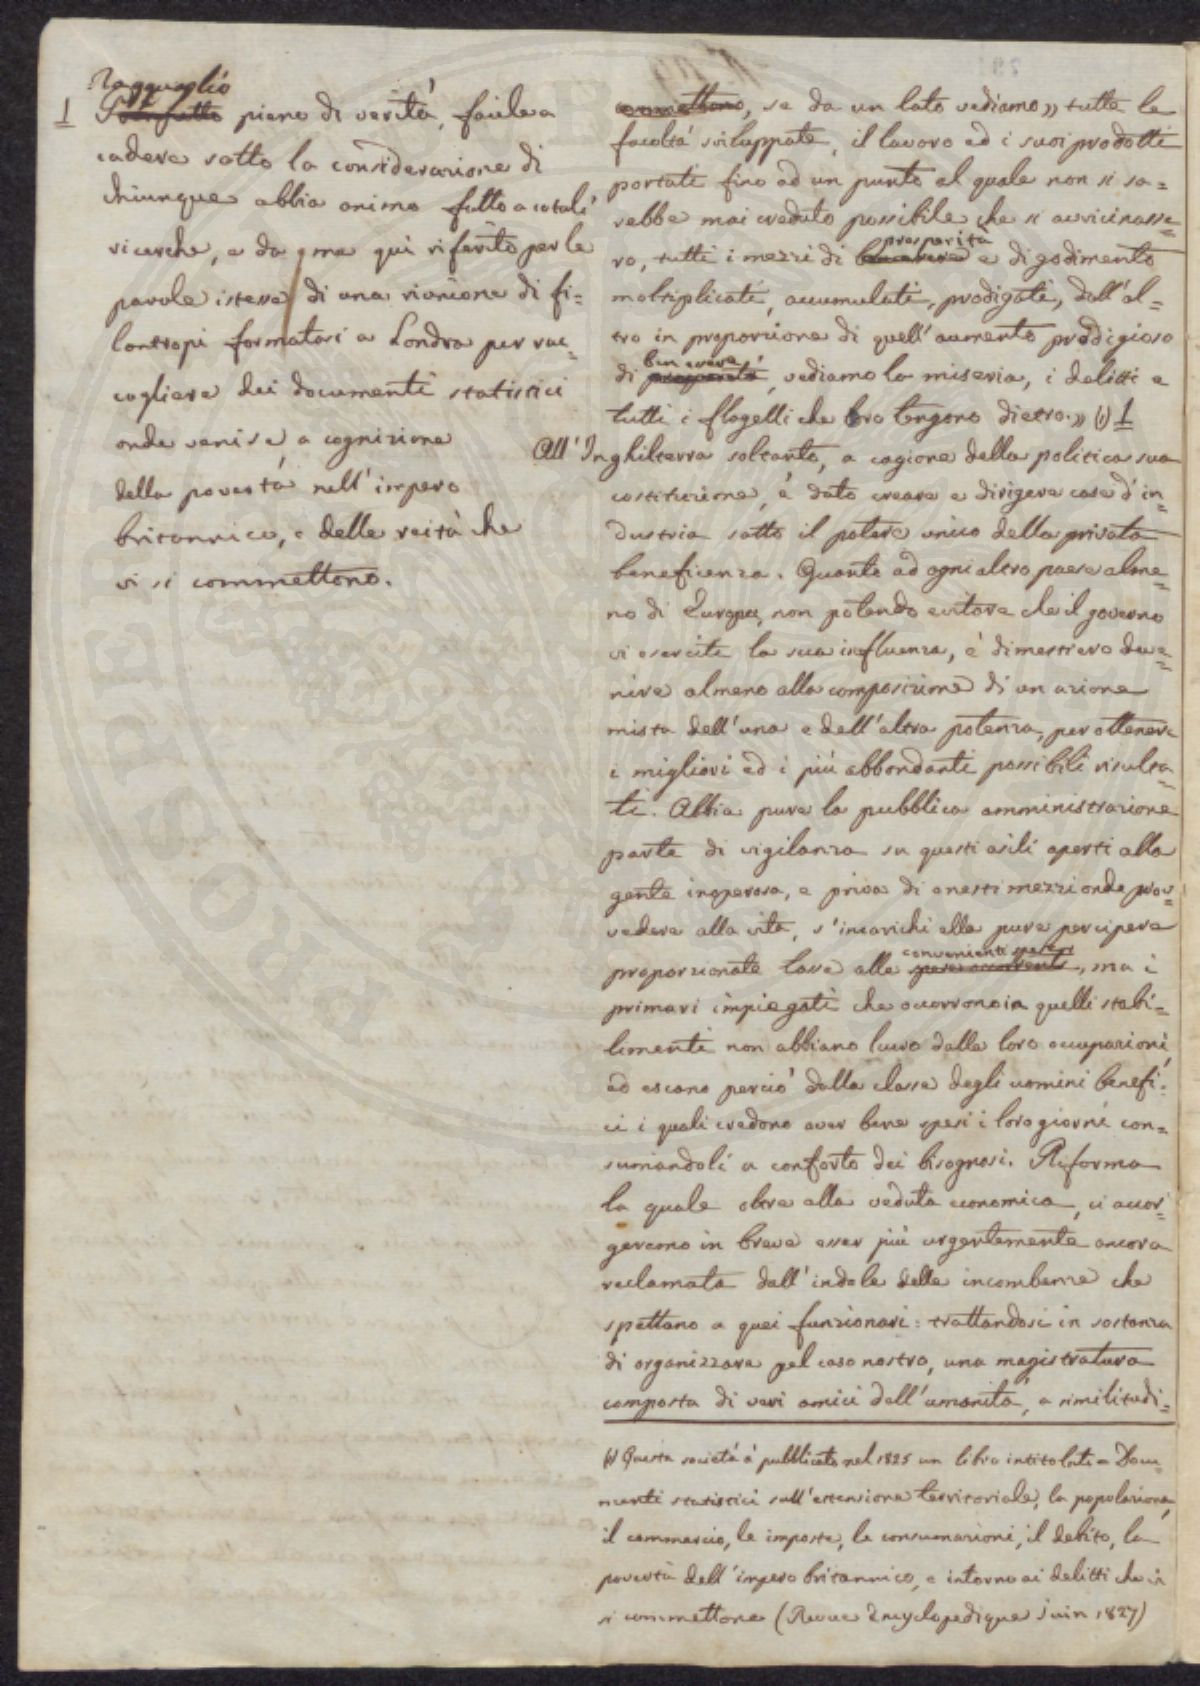 Ragguaglio
1 pieno di verità, facile a
cadere sotto la considerazione di
chiunque abbia animo fatto a cotali
ricerche, e da qui riferito per le
parole istesse di una riunione di fi=
lantropi formatasi a Londra per rac=
cogliere dei documenti statistici
onde venire a cognizione
della povertà nell'impero
britannico, e delle reità che
vi si commettono.
commettono, se da un lato vediamo » tutte le
facoltà sviluppate, il lavoro ed i suoi prodotti
portati fino ad un punto al quale non si sa=
rebbe mai creduto possibile che si avvicinasse=
prosperità
ro, tutti i mezzi di benessere e di godimento
moltiplicati, accumulati, prodigati, dall'al=
tro in proporzione di quell'aumento prodigioso
ben essere
di prosperità, vediamo la miseria, i delitti e
tutti i flagelli che loro tengono dietro.» (1) 1
All'Inghilterra soltanto, a cagione della politica sua
costituzione, è dato creare e dirigere case d'in=
dustria sotto il potere unico della privata
beneficenza. Quanto ad ogni altro paese alme=
no di Europa, non potendo evitare che il governo
vi eserciti la sua influenza, è di mestiero deve=
nire almeno alla composizione di un azione
mista dell'una e dell'altra potenza, per ottenere
i migliori ed i più abbondanti possibili risulta=
ti. Abbia pure la pubblica amministrazione
parte di vigilanza su questi asili aperti alla
gente inoperosa, e priva di onesti mezzi onde prov=
vedere alla vita, s'incarichi ella pure percipere
convenienti spese
proporzionate tasse alle spese occorrenti, ma i
primari impiegati che occorrono in quelli stabi=
limenti non abbiano lucro dalla loro occupazioni,
ed escano perciò dalla classe degli uomini benefi=
ci i quali credono aver bene spesi i loro giorni con=
sumandoli a conforto dei bisognosi. Riforma
la quale oltre alla veduta economica, ci accor=
geremo in breve esser più urgentemente ancora
reclamata dall'indole delle incombenze che
spettano a quei funzionari: trattandosi in sostanza
di organizzare pel caso nostro, una magistratura
composta di veri amici dell'umanità, a similitudi=
(1) Questa società à pubblicato nel 1825 un libro intitolato = Docu=
menti statistici sull'estensione territoriale, la popolazione,
il commercio, le imposte, le consumazioni, il debito, la
povertà dell'impero britannico, e intorno ai delitti che vi
si commettono (Revue Encyclopedique Juin 1827)